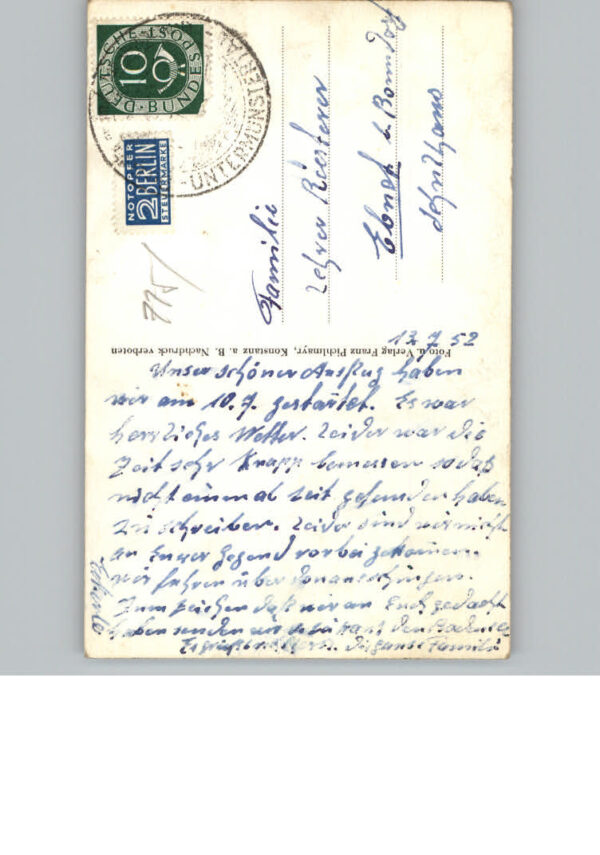 DEUTSCHE·POST·BUNDES
10
UNTERMÜNSTERTAL
NOTOPFER
2 BERLIN
STEUERMARKE
775/
Familie
Lehrer Riesterer
Ebnet b Bonndorf
Schulhaus
Foto u. Verlag Franz Pichlmayr, Konstanz a. B. Nachdruck verboten
12 7 52
Unser schöner Ausflug haben
wir am 10.7. gestartet. Es war
herrliches Wetter. Leider war die
Zeit sehr knapp bemessen sodaß
nicht einmal Zeit gefunden haben
zu schreiben. Leider sind wir nicht
an Eurer Gegend vorbei gekommen.
wir fuhren über Donaueschingen.
Zum Zeichen daß wir an Euch gedacht
haben senden wir den Bodensee
Es grüßt die ganze Familie